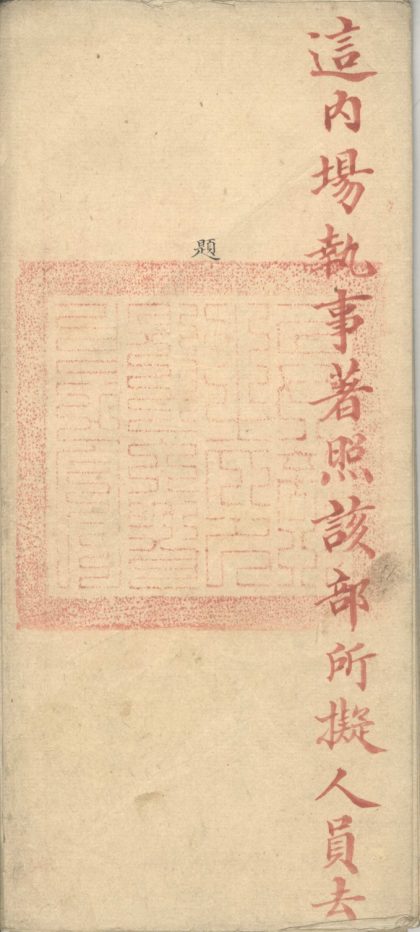 這内場執事著照該部所擬人員去
題